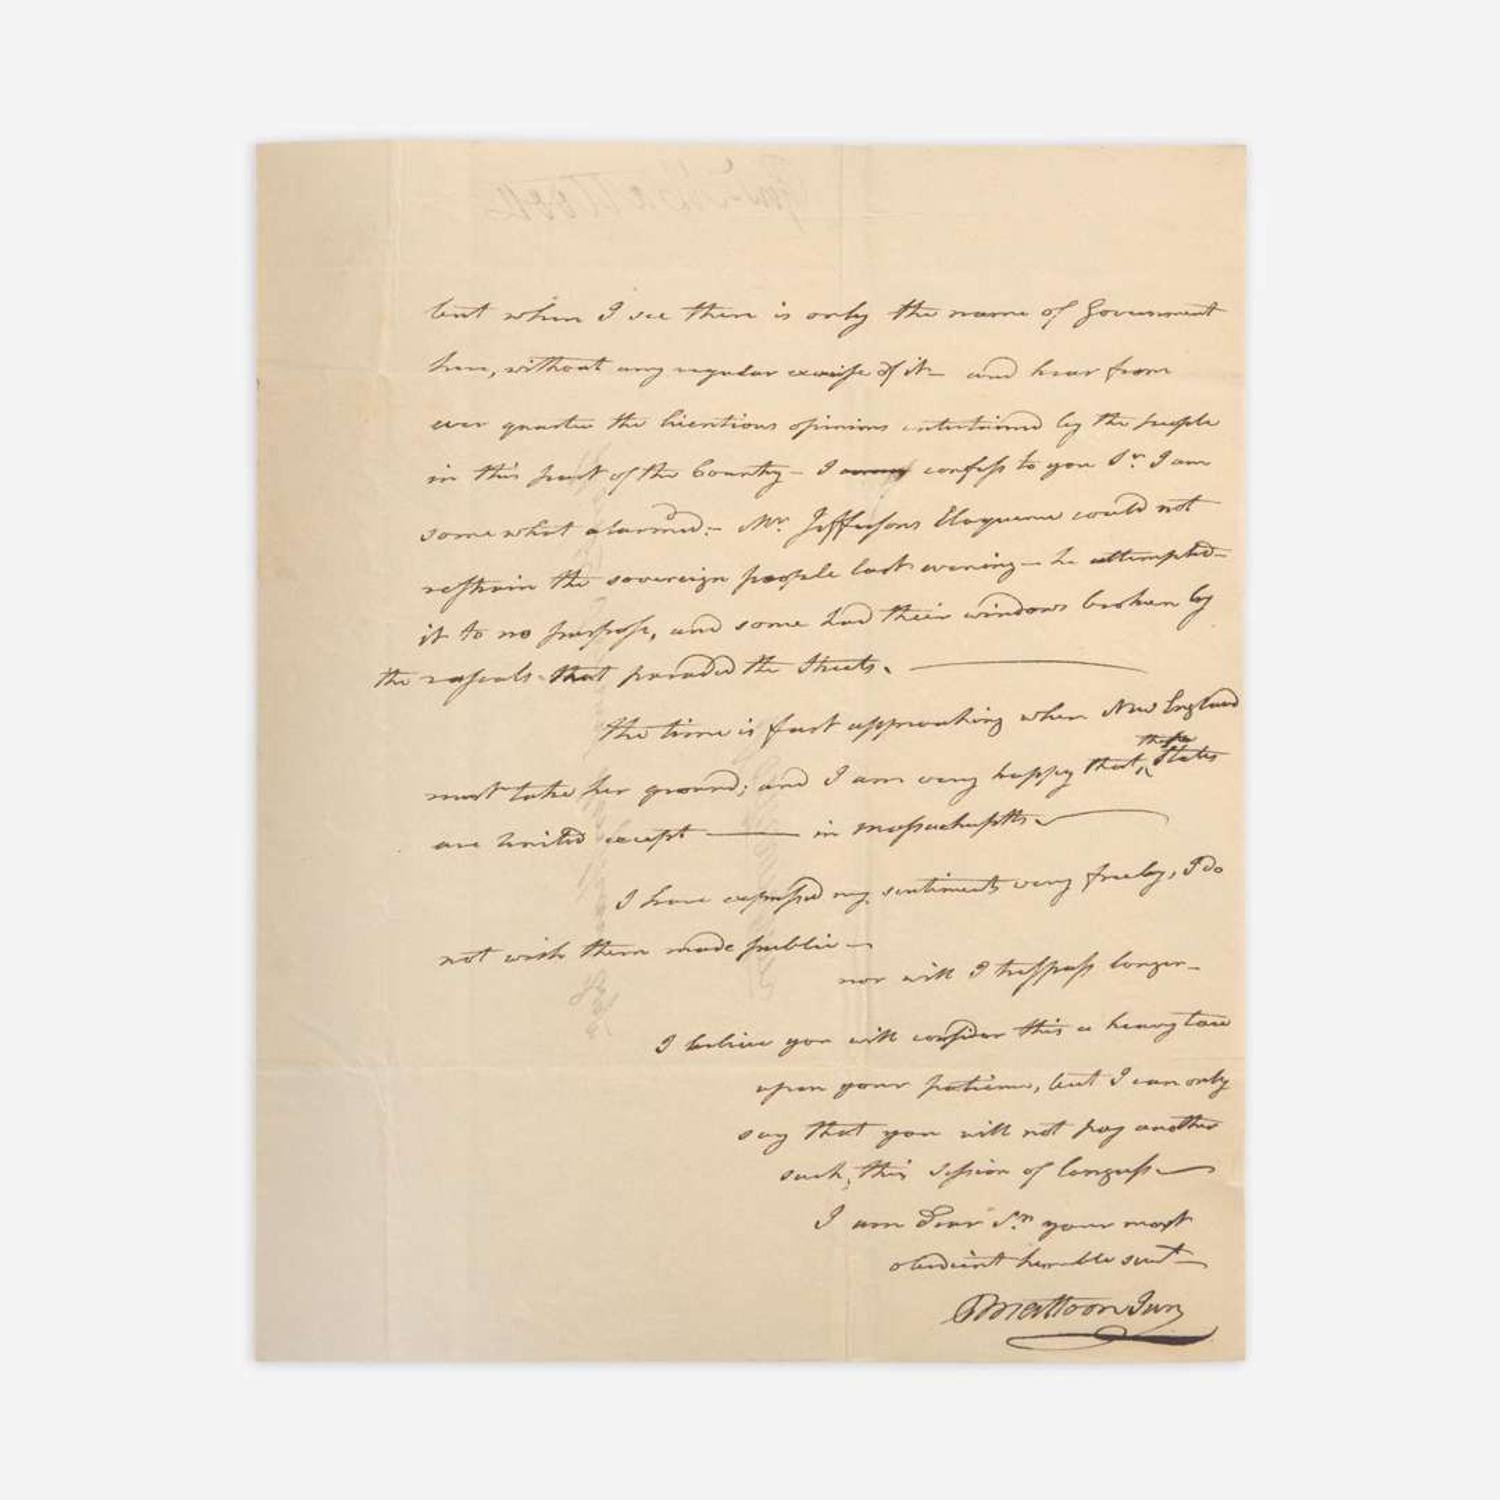 but when I see there is only the name of Government
here, without any regular exercise of it— and hear from
ever quarter the licentious opinions entertained by the people
in this part of the Country— I confess to you Sr. I am
somewhat alarmed:— Mr. Jeffersons Eloquence could not
restrain the sovereign people last evening— he attempted—
it to no purpose, and some had their windows broken by
the rascals that paraded the Streets.
the time is fast approaching when New England
must take her ground; and I am very happy that these States
are united except —— in Massachusetts—
I have expressed my sentiments very freely, I do
not wish them made public—
nor will I trespass longer—
I believe you will consider this a heavy tax
upon your patience, but I can only
say that you will not pay another
such, this session of Congress—
I am Dear Sr. your most
obedient humble servt—
E Mattoon Junr